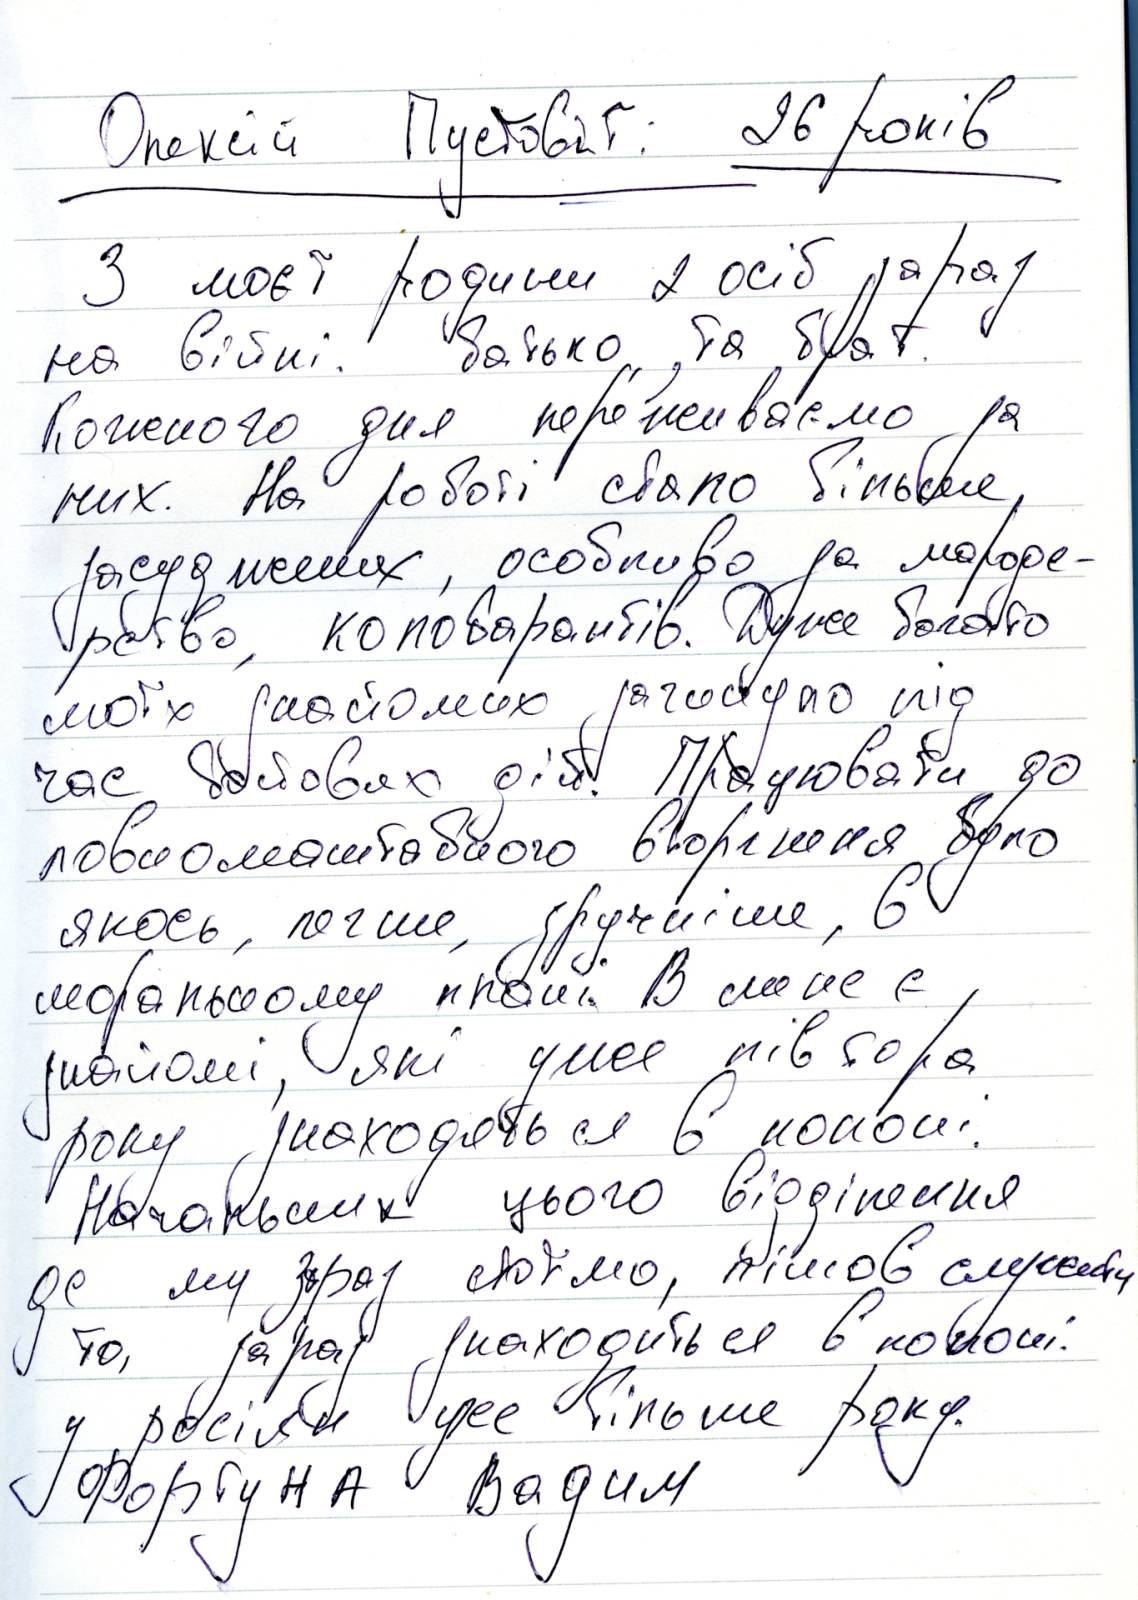 Олексій Пустовіт: 26 років
З моєї родини 2 осіб зараз
на війні. батько, та брат.
Кожного дня переживаємо за
них. На роботі стало більше,
засуджених, особливо за мароде-
рство, колоборантів. Дуже багато
моїх знайомих загинуло під
час бойових дій. Працювати до
повномаштабного вторгнення було
якось, легше, зручніше, в
моральному плані. В мене є
знайомі, які уже півтора
року знаходяться в полоні.
Начальник цього відділення
де ми зараз стоїмо, пішов служити
то, зараз знаходиться в полоні.
у росіян уже більше року.
Фортуна Вадим